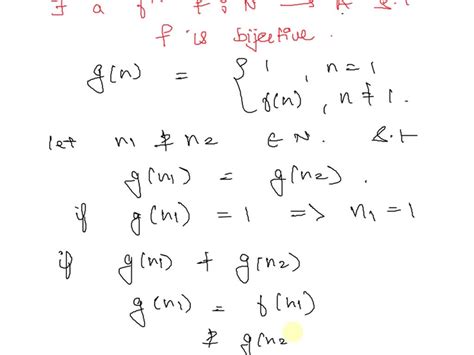 ∃ a fⁿ f : N → A s.t
f is bijective.
g(n) = { 1 , n = 1
f(n) , n ≠ 1.
let n1 & n2 ∈ N. s.t
g(n1) = g(n2).
if g(n1) = 1 => n1 = 1
if g(n1) ≠ g(n2)
g(n1) = f(n1)
& g(n2